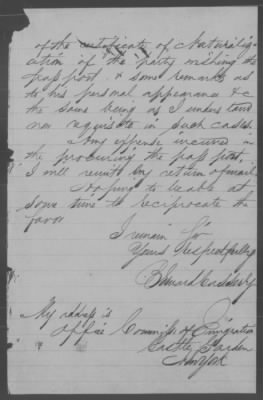 of the certificate of Naturaliz-
ation of the party wishing the
passport & some remarks as
to his personal appearance &c
the same being as I understand
now requisite in such cases.
Any expense incured in
the procuring the pass port,
I will remit by return of mail.
Hoping to be able at
some time to reciprocate the
favor
I remain Sir
Yours Respectfully
Bernard
My address is
Office Commiss of Emigration
Castle Garden
New York